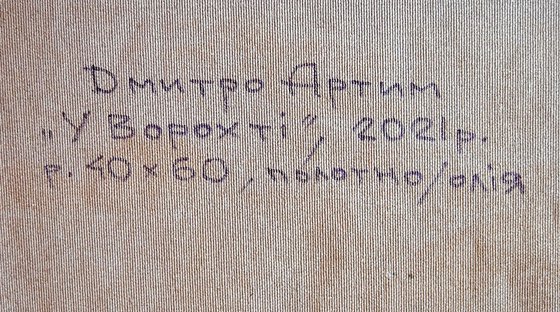 Дмитро Артим
„У Ворохті”, 2021р.
р. 40х60, полотно/олія